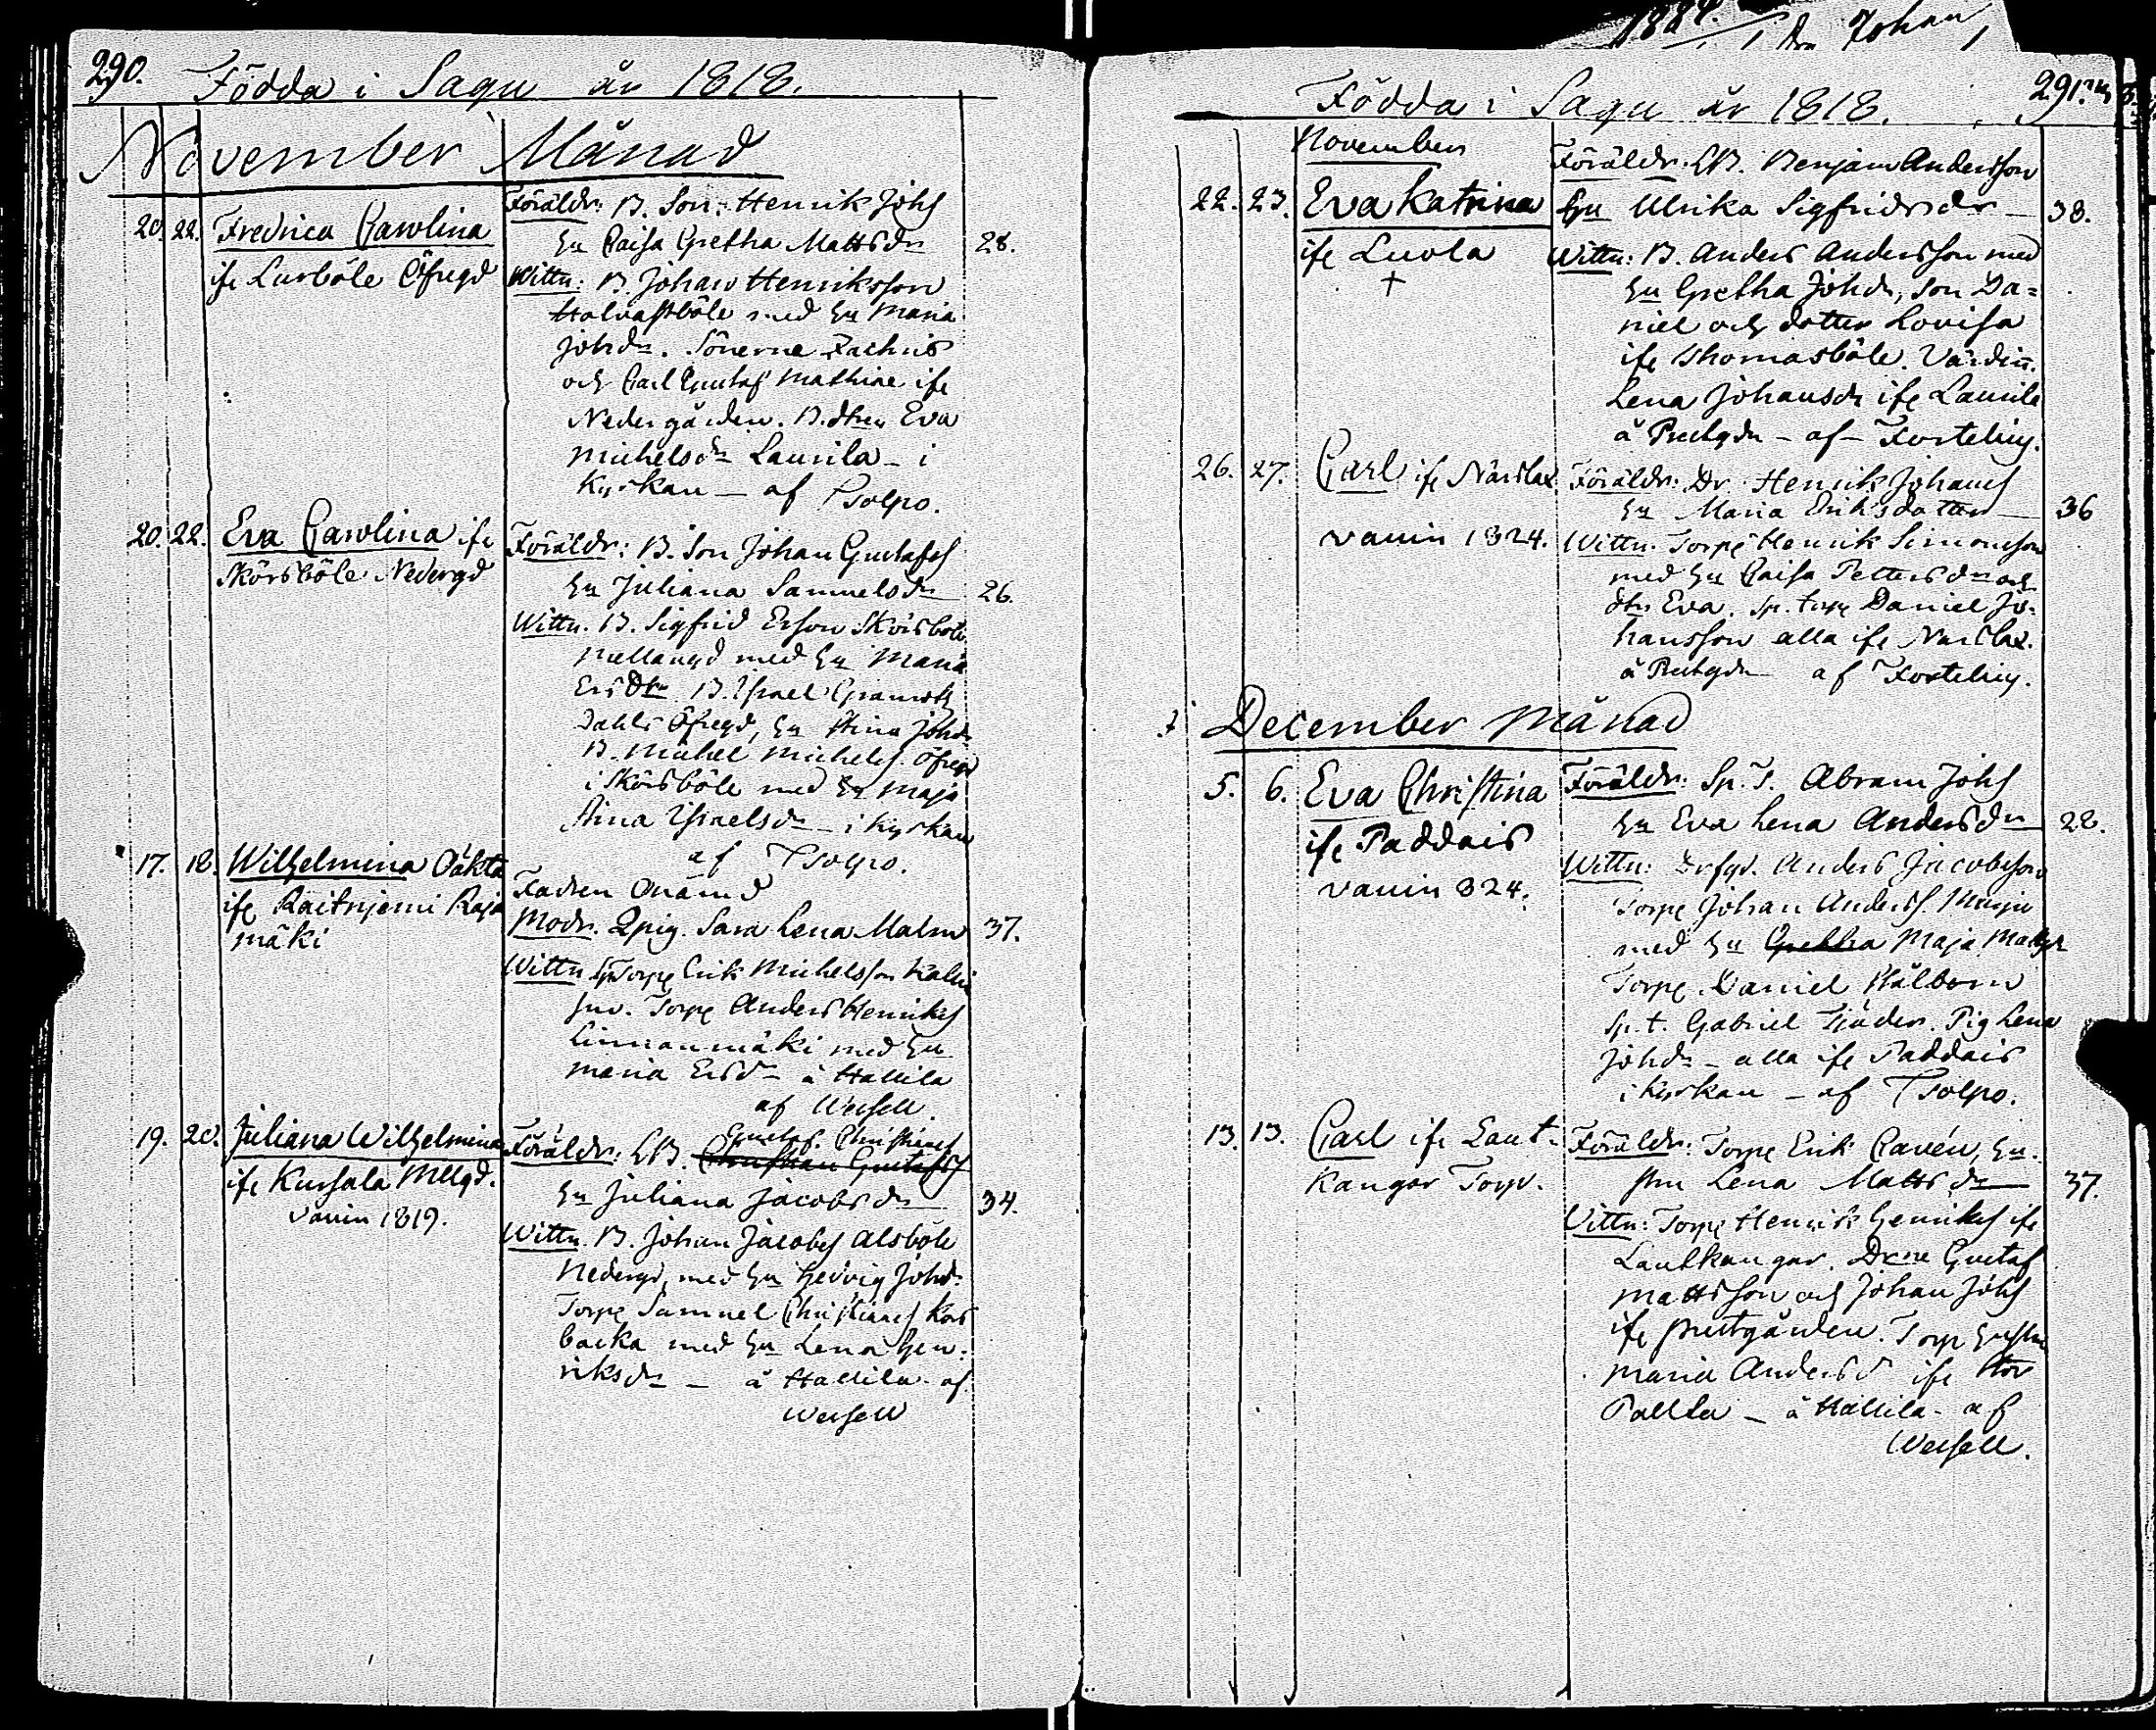 290. Födda i Sagu år 1818.
November Månad
20. 22. Fredrica Carolina
ifr Lurböle Öfregd
Föräldr: B. Son. Henrik Johs
hu Caisa Gretha Mattsdr 28.
Wittn: B. Johan Henriksson
med hu Maria
Johdr. Sönerne Zachris
och Carl Gustaf Mathiae ifr
Nedergården. B. dtren Eva
Michelsdr Laurila - i
Kyrkan - af Tsolpo.
20. 22. Eva Carolina ifr
Skörsböle Nedergd
Föräldr: B. Son Johan Gustafss
hu Juliana Samuelsdr 26.
Wittn. B. Sigfrid Ersson Skörsböle
Mellangd med hu Maria
Ersdtr B. Israel
Dahls Öfregd, hu Stina Johdr
B. Michel Michelss. Öfregd
i Skörsböle med hu Maja
Stina Israelsdr - i Kyrkan
af Tsolpo.
17. 18. Wilhelmina Oäkta
ifr Raitniemi Raja
mäki
Fadren Onämd
Modr. Qpig. Sara Lena Malm 37.
Wittn Torpe Erik Michelsson
Torpe Anders Henrikss
Linnanmäki med hu
Maria Ersdr - å Hallila
af Wexell.
19. 20. Juliana Wilhelmina
ifr Kursala Mellgd.
Vaccin 1819.
Gustaf. Christians
Föräldr: LB. Christian Gustafss
hu Juliana Jacobsdr 34.
Wittn. B. Johan Jacobss Alsböle
Nedergd, med hu Hedvig Johdr
Torpe Samuel Christianss Kors
backa med hu Lena Hen:
riksdr - å Hallila af
Wexell
Födda i Sagu år 1818. 291.
November
22. 23. Eva Katrina
ifr Luola
†
Föräldr: LB. Benjam Andersson
hu Ulrika Sigfridsdr - 38.
Wittn: B. Anders Andersson med
hu Gretha Johdr, son Da=
niel och dotter Lovisa
ifr Thomasböle. Värdin.
Lena Johansdr ifr Laurila
å Prestgdn - af Forteliug.
26. 27. Carl ifr Närslax
vaccin 1824.
Föräldr: Dr. Henrik Johanss
hu Maria Eriksdotter - 36
Wittn. Torpe Henrik Simonsson
med hu Caisa Pettersdr och
dtr Eva. Sp. torp Daniel Jo=
hansson alla ifr Närslax.
å Prestgdn af Forteliug.
December Månad
5. 6. Eva Christina
ifr Paddais
vaccin 824.
Föräldr: Sp. T. Abram Johss
hu Eva Lena Andersdr 28.
Wittn: Anders Jacobsson
Torpe Johan Anderss.
med hu Gretha Maja Mattsdr
Torpe Daniel Stålborn
Sp. t. Gabriel Tjäder. Pig Lena
Johdr - alla ifr Paddais
i Kyrkan - af Tsolpo.
13. 13. Carl ifr Laut-
kangar Torp.
Föräldr: Torpe Erik Cavén, hu-
stru Lena Mattsdr 37.
Vittn: Torpe Henrik Henrikss ifr
Lautkangar. Drne Gustaf
Mattsson och Johan Johss
ifr Prestgården. Torp hustru
Maria Andersd ifr Stor
Pallla - å Hallila - af
Wexell.